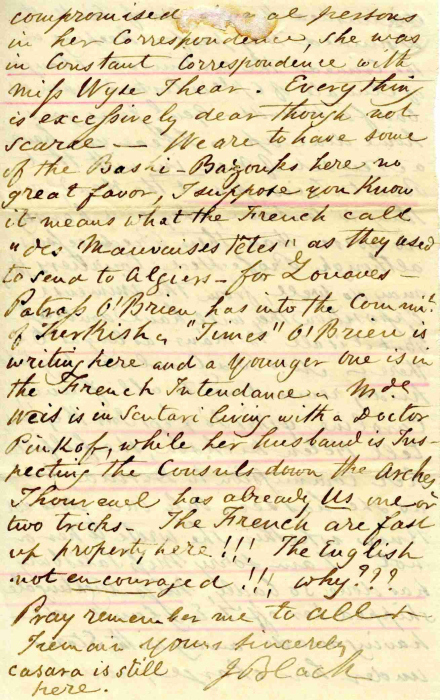 compromised al persons
in her Correspondence, she was
in Constant Correspondence with
Miss Wyse I hear. Everything
is excessively dear though not
scarce — We are to have some
of the Bashi-Bazouks here no
great favor, I suppose you Know
it means what the French call
"des Mauvaises Têtes" as they used
to send to Algiers — for Zouaves —
Patrass O'Brien has into the Commt.
of Turkish "Times" O'Brien is
writing here and a Younger one is in
the French Intendance. Mde.
Weis is in Scutari living with a Doctor
Pinkof, while her husband is Ins-
pecting the Consuls down the Arches
Thouvenel has already us one or
two tricks — The French are fast
up property here!!! The English
not encouraged!!! why???
Pray remember me to all
I remain Yours sincerely
casara is still JBlack
here.